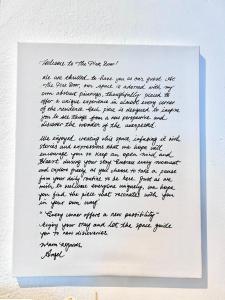 Welcome to The Pink Door!
We are thrilled to have you as our guest. At
The Pink Door, our space is adorned with my
own abstract paintings, thoughtfully placed to
offer a unique experience in almost every corner
of the residence. Each piece is designed to inspire
you to see things from a new perspective and
discover the wonder of the unexpected.
We enjoyed creating this space, infusing it with
stories and expressions that we hope will
encourage you to keep an open mind and
heart during your stay. Embrace every moment
and explore freely, as you choose to take a pause
from your daily routine to be here. Just as we
wish to welcome everyone uniquely, we hope
you find the piece that resonates with you
in your own way.
"Every corner offers a new possibility"
Enjoy your stay and let the space guide
you to new discoveries.
Warm regards,